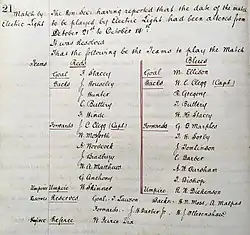 21 The Hon. Sec. having reported that the date of the match
Match by to be played by Electric Light had been altered from
Electric Light October 21st to October 14:
It was Resolved
That the following be the Teams to play the Match
Teams Reds Blues
Goal F. Stacey Goal M. Ellison
Backs J. Housley Backs W. E. Clegg (Capt)
Hunter R. Gregory
E. Buttery T. Buttery
F. Hinde W. H. Stacey
Forwards J. C. Clegg (Capt) Forwards G. B. Marples
W. Mosforth F. Barby
A. Woodcock J. Tomlinson
J. Bradbury C. Barber
A. H. Earnshaw
G. Anthony T. Bishop
Umpires Umpire W. Skinner Umpire R. R. Dickinson
Reserves Reserved Goal: T. Lawson Backs: H. Moss, A. Malpas
Forwards:
Referee Referee W. Peirce Dix